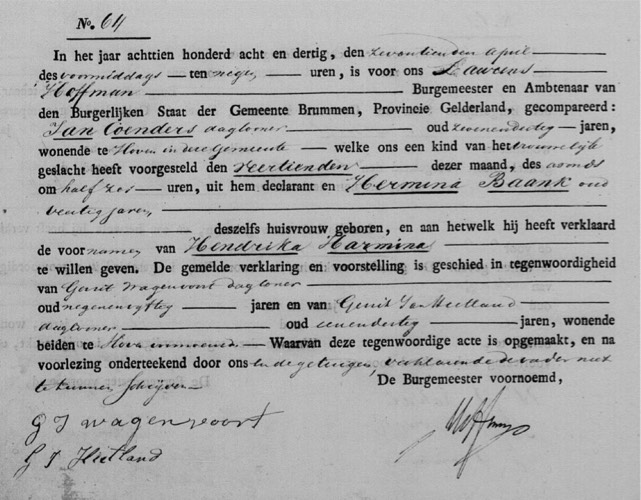 No. 64
In het jaar achttien honderd acht en dertig, den zeventienden april
des voormiddags ten negen uren, is voor ons Lawrens
Hoffman Burgemeester en Ambtenaar van
den Burgerlijken Staat der Gemeente Brummen, Provincie Gelderland, gecompareerd:
Jan Coenders daglooner oud zevenendertig jaren,
wonende te Hoven in deze Gemeente welke ons een kind van het vrouwelijk
geslacht heeft voorgesteld den veertienden dezer maand, des avonds
om half zes uren, uit hem declarant en Hermina Baank oud
veertig jaren
deszelfs huisvrouw geboren, en aan hetwelk hij heeft verklaard
de voornamen van Hendrika Harmina
te willen geven. De gemelde verklaring en voorstelling is geschied in tegenwoordigheid
van Gerrit Wagenvoort daglooner
oud negenenvyftig jaren en van Gerrit Jan Heetland
daglooner oud eenendertig jaren, wonende
beiden te Hoven Waarvan deze tegenwoordige acte is opgemaakt, en na
voorlezing onderteekend door ons en de getuigen, verklarende de vader niet
te kunnen schrijven De Burgemeester voornoemd,
G J wagenvoort
G J Heetland